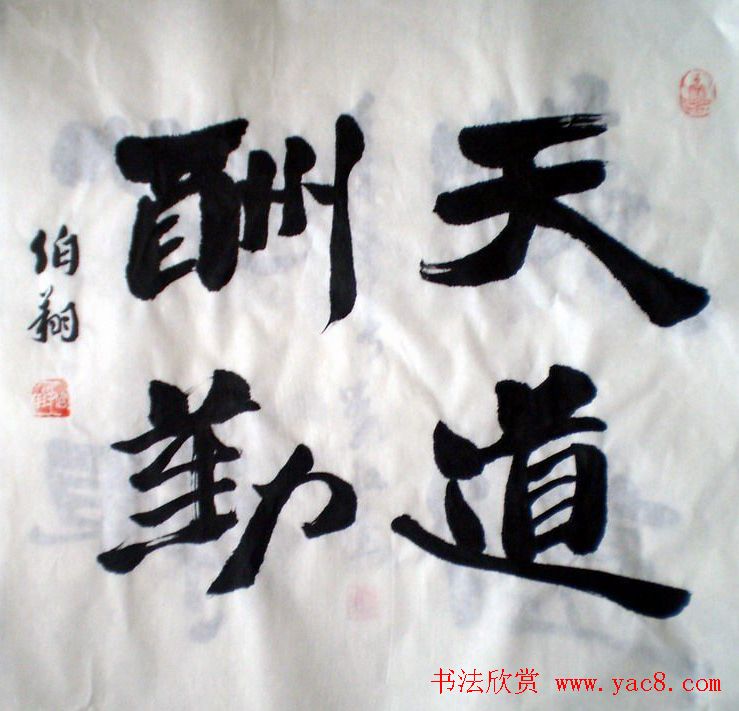 天道
酬勤
伯翔
书法欣赏 www.yac8.com